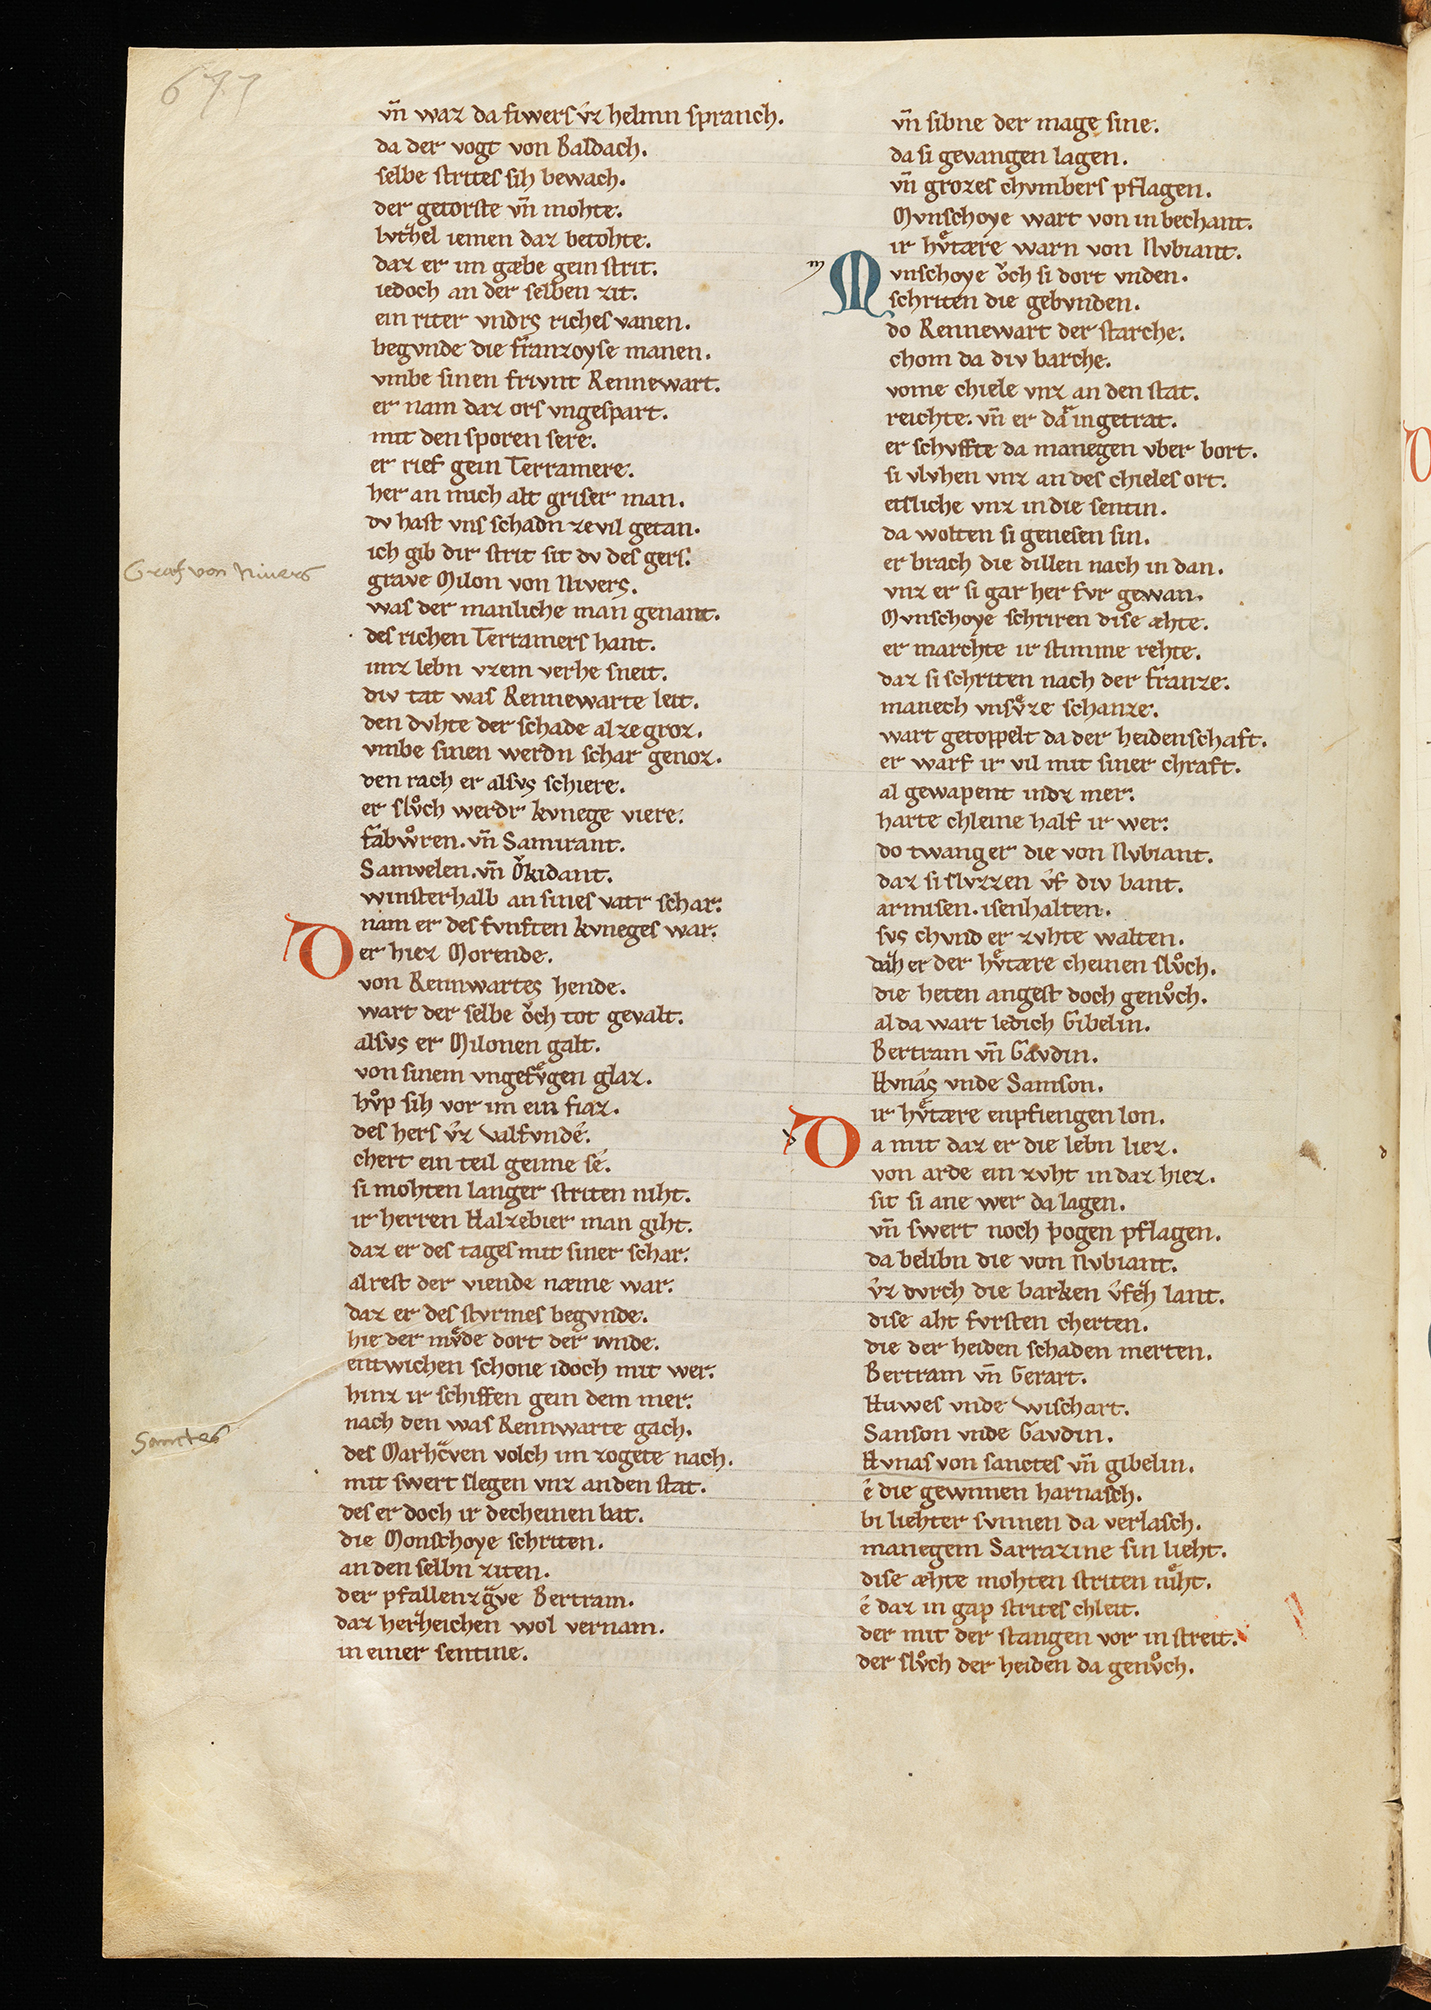 677
vn̄ waz da fiwers v̓z helmn spranch.
da der vogt von Baldach.
selbe strites sih bewach.
der getorste vn̄ mohte.
lvthel iemen daz betohte.
daz er im gæbe gein strit.
iedoch an der selben zit.
ein riter vndrs riches vanen.
begvnde die franzoyse manen.
vmbe sinen frivnt Rennewart.
er nam daz ors vngespart.
mit den sporen sere.
er rief gein Terramere.
her an mich alt griser man.
dv hast vns schadn ze vil getan.
ich gib dir strit sit dv des gers.
Graf von Nivers
grave Milon von Nivers.
was der manliche man genant.
des richen Terramers hant.
imz lebn vzem verhe sneit.
div tat was Rennewarte leit.
den dvhte der schade al ze groz.
vmbe sinen werdn schar genoz.
den rach er alsvs schiere.
er slvͦch werdr kvnege viere.
fabwͦren. vn̄ Samirant.
Samvelen. vn̄ Oͮkidant.
winsterhalb an sines vatr schar.
nam er des fvnften kvneges war.
Der hiez Morende.
von Rennwartes hende.
wart der selbe oͮch tot gevalt.
alsvs er Milonen galt.
von sinem vngefvͤgen glaz.
hvͦp sih vor im ein fiaz.
des hers v̓z valfvnde̓.
chert ein teil geime se̓.
si mohten langer striten niht.
ir herren Halzebier man giht.
daz er des tages mit siner schar.
alrest der viende næme war.
daz er des stvrmes begvnde.
hie der mvͤde dort der wnde.
entwichen schone idoch mit wer.
hinz ir schiffen gein dem mer.
nach den was Rennwarte gach.
Sanctes
des Marhcͣven volch im zogete nach.
mit swert slegen vnz an den stat.
des er doch ir decheinen bat.
die Monschoye schriten.
an den selbn ziten.
der pfallenzgͣve Bertram.
daz herzeichen wol vernam.
in einer sentine.
vn̄ sibne der mage sine.
da si gevangen lagen.
vn̄ grozes chvmbers pflagen.
Mvnschoye wart von in bechant.
ir hvͤtære warn von Nvbiant.
m
Mvnschoye oͮch si dort vnden.
schriten die gebvnden.
do Rennewart der starche.
chom da div barche.
vome chiele vnz an den stat.
reichte. vn̄ er daͬ in getrat.
er schvffte da manegen vber bort.
si vlvhen vnz an des chieles ort.
etsliche vnz in die sentin.
da wolten si genesen sin.
er brach die dillen nach in dan.
vnz er si gar her fvr gewan.
Mvnschoye schriren dise æhte.
er marchte ir stimme rehte.
daz si schriten nach der franze.
manech vnsvͤze schanze.
wart getoppelt da der heidenschaft.
er warf ir vil mit siner chraft.
al gewapent indz mer.
harte chleine half ir wer.
do twanger die von Nvbiant.
daz si slvzzen v̓f div bant.
armisen. isenhalten.
svs chvnd er zvhte walten.
er der hvͤtære cheinen slvͦch.
die heten angest doch genvͦch.
al da wart ledich Gibelin.
Bertram vn̄ Gavdin.
Hvnas vnde Samson.
ir hvͤtære enpfiengen lon.
Da mit daz er die lebn liez.
von arde ein zvht in daz hiez.
sit si ane wer da lagen.
vn̄ swert noch pogen pflagen.
da belibn die von Nvbiant.
v̓z dvrch die barken lant.
dise aht fvrsten cherten.
die der heiden schaden merten.
Bertram vn̄ Gerart.
Huwes vnde Wischart.
Sanson vnde Gavdin.
Hvnas von sanctes vn̄ gibelin.
e̓ die gewnnen harnasch.
bi liehter svnnen da verlasch.
manegem Sarrazine sin lieht.
dise æhte mohten striten niͤht.
e̓ daz in gap strites chleit.
der mit der stangen vor in streit.
der slvͦch der heiden da genvͦch.